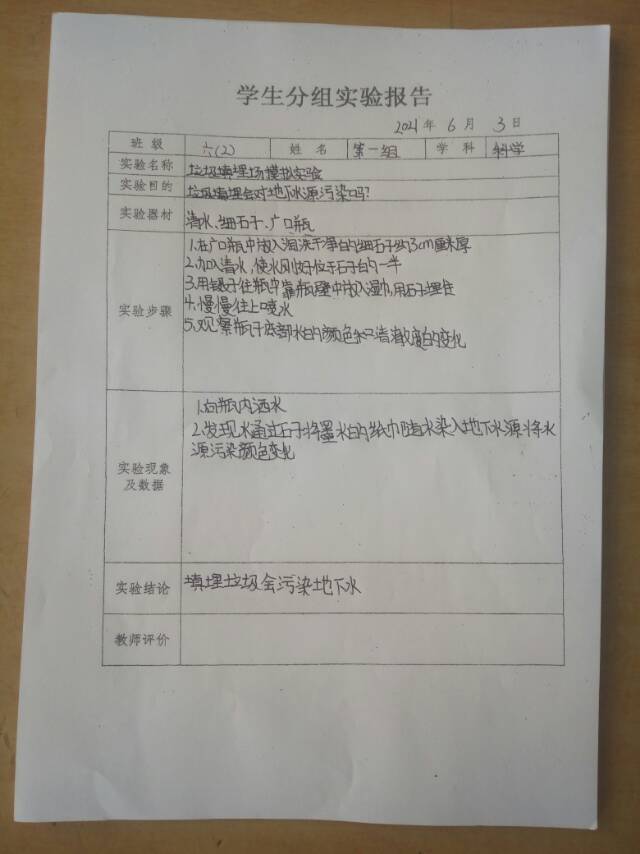 学生分组实验报告
2021年 6月 3日
班级 六(2) 姓名 第一组 学科 科学
实验名称 垃圾填埋场模拟实验
实验目的 垃圾填埋会对地下水源污染吗?
实验器材 清水、细石子、广口瓶
实验步骤
1.在广口瓶中放入清洗干净的细石子约3cm厘米厚
2.加入清水,使水刚好位于石子的一半
3.用镊子住瓶中靠瓶壁中放入湿巾,用石子埋住
4.慢慢往上喷水
5.观察瓶子底部水的颜色和清澈度的变化
实验现象及数据
1.向瓶内洒水
2.发现水通过石子将墨水的纸巾随水染入地下水源将水
源污染颜色变化
实验结论 填埋垃圾会污染地下水
教师评价